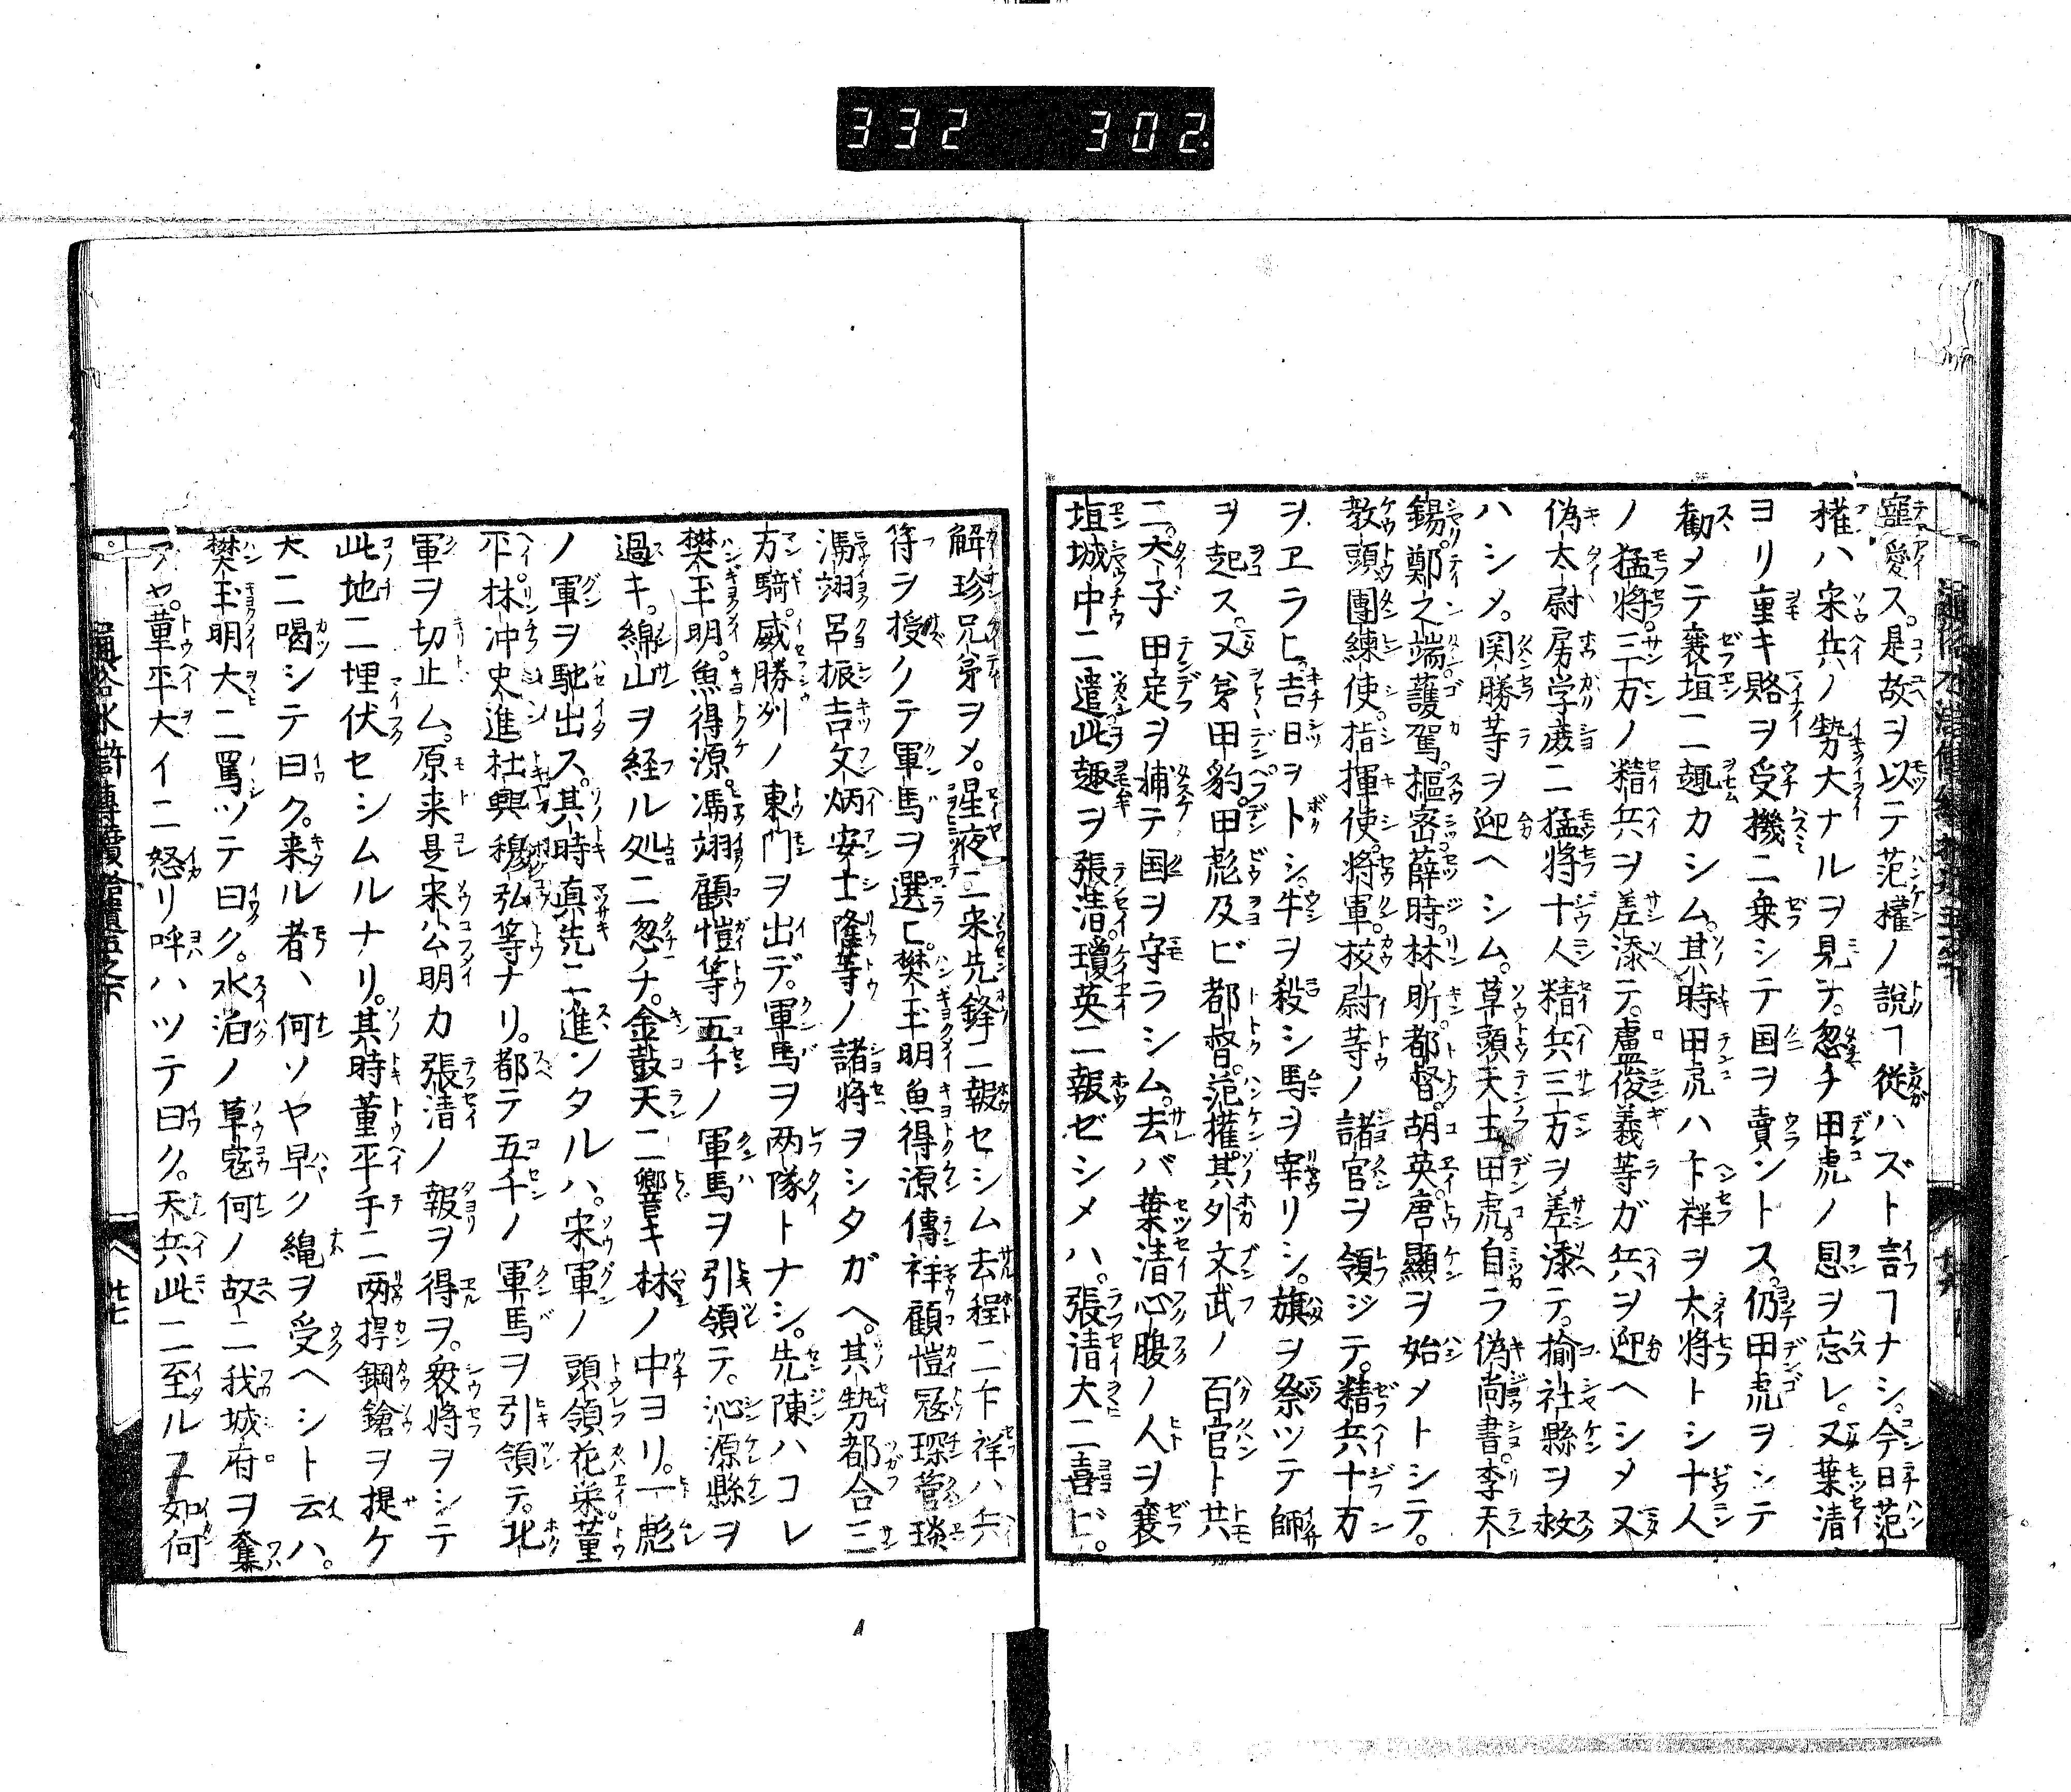 332 302.
寵愛ス。是故ヲ以テ范權ノ說ヿ從ハズト言ヿナシ。今日范
權ハ宋兵ノ勢大ナルヲ見テ。忽チ甲虎ノ恩ヲ忘レ。又葉清
ヨリ重キ賂ヲ受機ニ乗シテ国ヲ賣ントス。仍甲虎ヲシテ
勸メテ襄垣ニ趣カシム。其時甲虎ハ卞祥ヲ大將トシ十人
ノ猛將。三万ノ精兵ヲ差添テ。盧俊義等ガ兵ヲ迎ヘシメ又
偽太尉房学度ニ猛將十人精兵三万ヲ差添テ。揄社縣ヲ救
ハシメ。関勝等ヲ迎ヘシム。草頭天王甲虎。自ラ偽尚書。李天
錫鄭之端。護駕。樞密薛時。林昕。都督。胡英。唐顯ヲ始メトシテ。
教頭團練使。指揮使。將軍。校尉等ノ諸官ヲ領ジテ。精兵十万
ヲエラヒ。吉日ヲトシ。牛ヲ殺シ馬ヲ宰リシ。旗ヲ祭ツテ師
ヲ起ス。又弟甲豹。甲彪及ビ都督。范權。其外文武ノ百官ト共
ニ。太子甲定ヲ捕テ国ヲ守ラシム。去バ葉清心腹ノ人ヲ襄
垣城中ニ遣此趣ヲ張清。瓊英ニ報ゼシメハ。張清大ニ喜ビ。
解珍兄弟ヲメ。星夜ニ宋先鋒ニ報セシム去程ニ卞祥ハ兵
符ヲ授ノテ軍馬ヲ選ヒ。樊玉明魚得源傳祥顧愷寇琛菅琰
馮翊呂振吉文炳安士隆等ノ諸將ヲシタガヘ。其勢都合三
万騎。威勝列ノ東門ヲ出デ。軍馬ヲ两隊トナシ。先陳ハコレ
樊玉明。魚得源。馮翊顧愷等五千ノ軍馬ヲ引領テ。沁源縣ヲ
過キ。綿山ヲ経ル処ニ忽チ。金鼓天ニ響キ林ノ中ヨリ。一彪
ノ軍ヲ馳出ス。其時真先ニ進ンタルハ。宋軍ノ頭領花栄董
平林冲史進杜興穆弘等ナリ。都テ五千ノ軍馬ヲ引領テ。北
軍ヲ切止ム。原来是宋公明カ張清ノ報ヲ得ヲ。衆將ヲシテ
此地ニ埋伏セシムルナリ。其時董平手ニ两捍鋼鎗ヲ提ケ
大ニ喝シテ曰ク。来ル者ハ何ソヤ早ク縄ヲ受ヘシト云ハ。
樊玉明大ニ罵ツテ曰ク。水泊ノ草寇何ノ故ニ我城府ヲ奪
フヤ。董平大イニ怒リ呼ハツテ曰ク。天兵此ニ至ルヿ如何